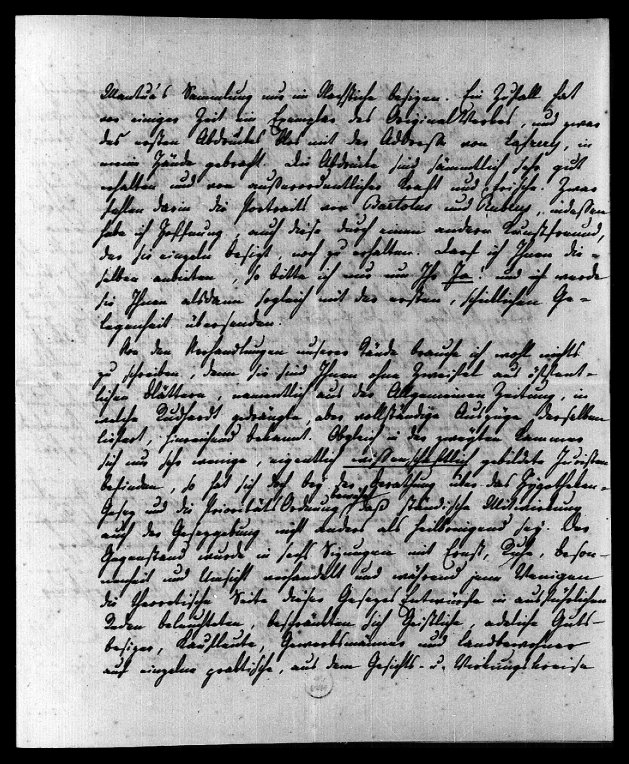 Mantua's Sammlung nur im Nachstiche besitzen. Ein Zufall hat
vor einiger Zeit ein Exemplar des Original Werkes, und zwar
des ersten Abdruckes mit der Adresse von, in
meine Hände gebracht. Die Abdrücke sind sämmtlich sehr gut
erhalten und von außerordentlicher Kraft und Frische. Zwar
fehlen darin die Portraits von Bartolus und Baldus, indeßen
habe ich Hoffnung, auch diese durch einen andern Kunstfreund,
der sie einzeln besitzt, noch zu erhalten. Darf ich Ihnen die-
selben anbieten, so bitte ich nur um Ihr Ja! und ich werde
sie Ihnen alsdann sogleich mit der ersten, schicklichen Ge-
legenheit übersenden.
Von den Verhandlungen unserer Stände brauche ich wohl nichts
zu schreiben, denn sie sind Ihnen ohne Zweifel aus öffent-
lichen Blättern, namentlich aus der Allgemeinen Zeitung, in
welche Rudhardt gedrängte, aber vollständige Auszüge derselben
liefert, hinreichend bekannt. Obgleich in der zweyten Kammer
sich nur sehr wenige, eigentlich wissenschaftlich gebildete Juristen
befinden, so hat sich doch bey der Berathung über das Hypotheken-
Gesez und die Prioritäts Ordnung bewährt, daß ständische Mitwirkung
auch der Gesezgebung nicht anders als heilbringend sey. Der
Gegenstand wurde in sechs Sizungen mit Ernst, Ruhe, beson-
nenheit und Umsicht verhandelt und während jene Wenigen
die theoretische Seite dieser Gesezes Entwürfe in ausführlichen
Reden beleuchteten, beschränkten sich Geistliche, adeliche Guts-
besizer, Kaufleute, Gewerbsmänner und Landbewohner
auf einzelne praktische, aus dem Gesichts- u. Wirkungskreise